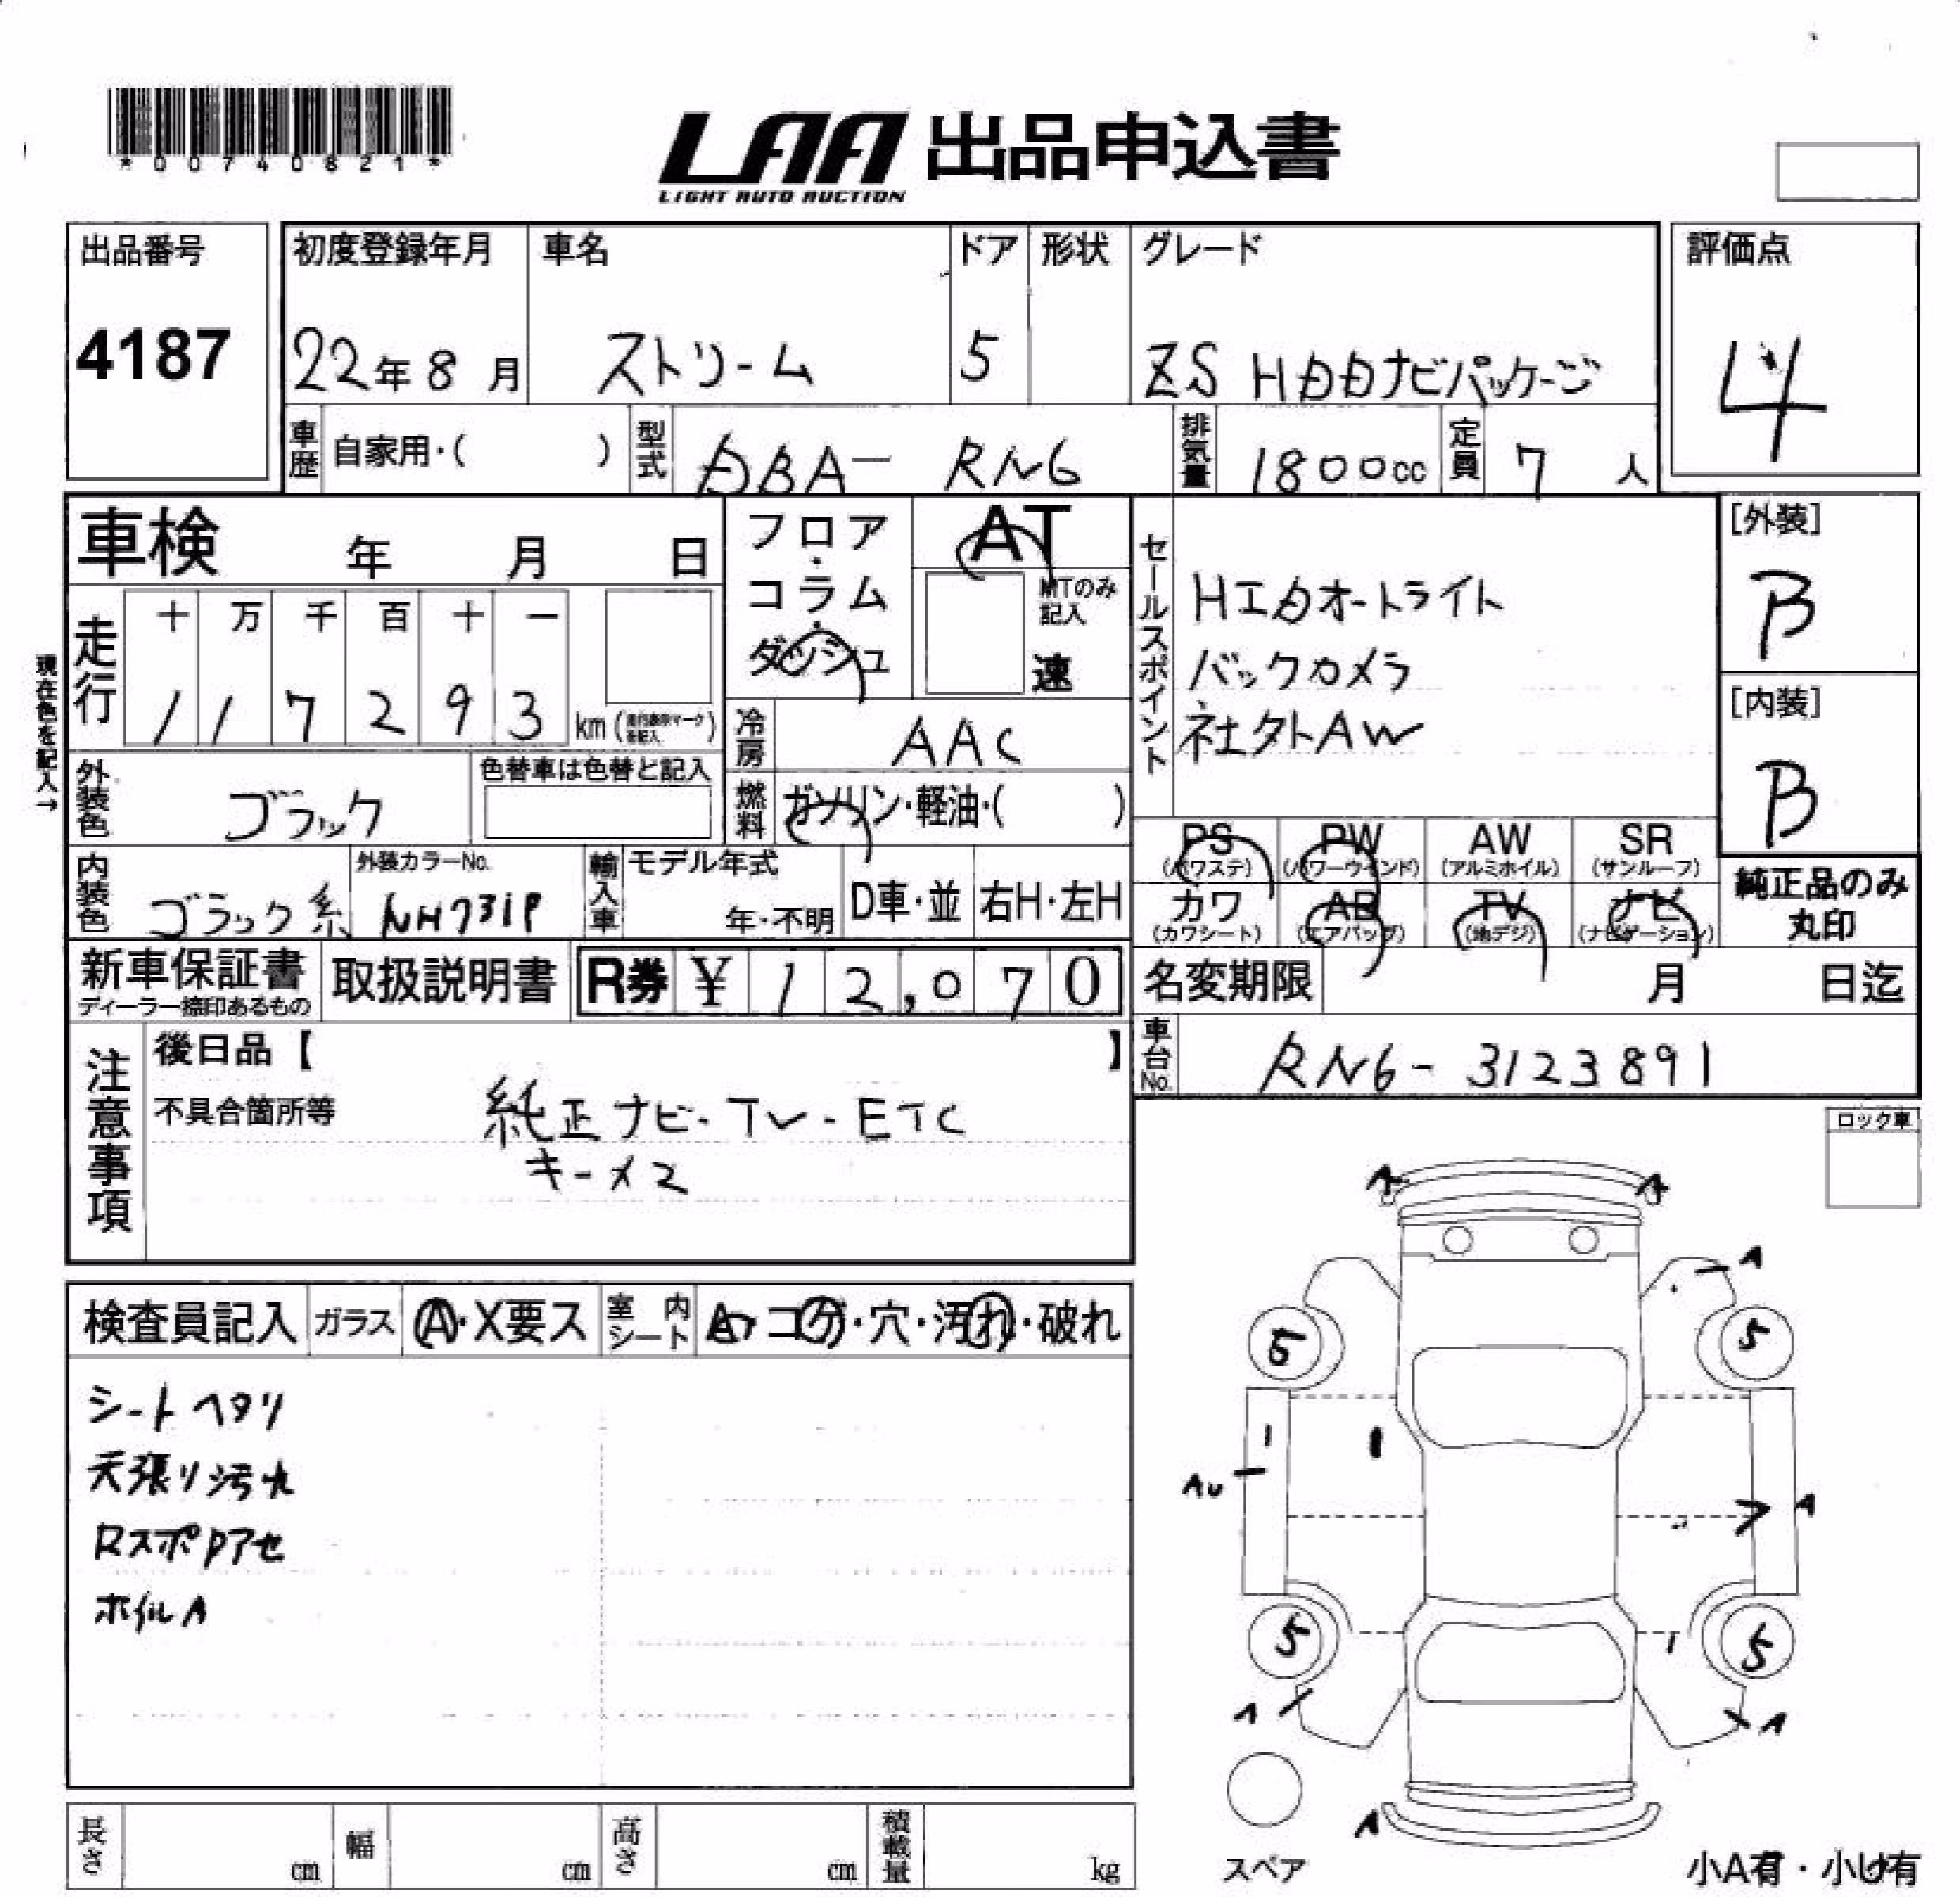 *00740821*
LAA 出品申込書
LIGHT AUTO AUCTION
出品番号
4187
初度登録年月
22年8月
車名
ストリーム
ドア
5
形状
グレード
ZS HDDナビパッケージ
評価点
4
車歴
自家用・( )
型式
DBA- RN6
排気量
1800cc
定員
7人
車検 年 月 日
フロア・コラム・ダッシュ
AT
MTのみ記入
速
セールスポイント
HIDオートライト
バックカメラ
社外AW
[外装]
B
[内装]
B
現在色を記入→
走行
十 万 千 百 十 一
1 1 7 2 9 3
km
冷房
AAC
燃料
ガソリン・軽油・( )
外装色
ブラック
色替車は色替と記入
内装色
ブラック系
外装カラーNo.
NH731P
輸入車
モデル年式
年・不明
D車・並
右H・左H
PS
(パワステ)
PW
(パワーウインド)
AW
(アルミホイル)
SR
(サンルーフ)
カワ
(カワシート)
AB
(エアバッグ)
TV
(地デジ)
ナビ
(ナビゲーション)
純正品のみ
丸印
新車保証書
ディーラー捺印あるもの
取扱説明書
R券 ¥ 12,070
名変期限 月 日迄
車台No.
RN6-3123891
注意事項
後日品【 】
不具合箇所等
純正ナビ・TV・ETC
キー×2
ロック車
検査員記入
ガラス
A・X要ス
室内シート
A・コゲ・穴・汚れ・破れ
シートヘタリ
天張り汚れ
RスポDアセ
ホイルA
A
A
A
5
5
AU
A
5
5
A
A
A
スペア
小A有・小U有
長さ cm
幅 cm
高さ cm
積載量 kg